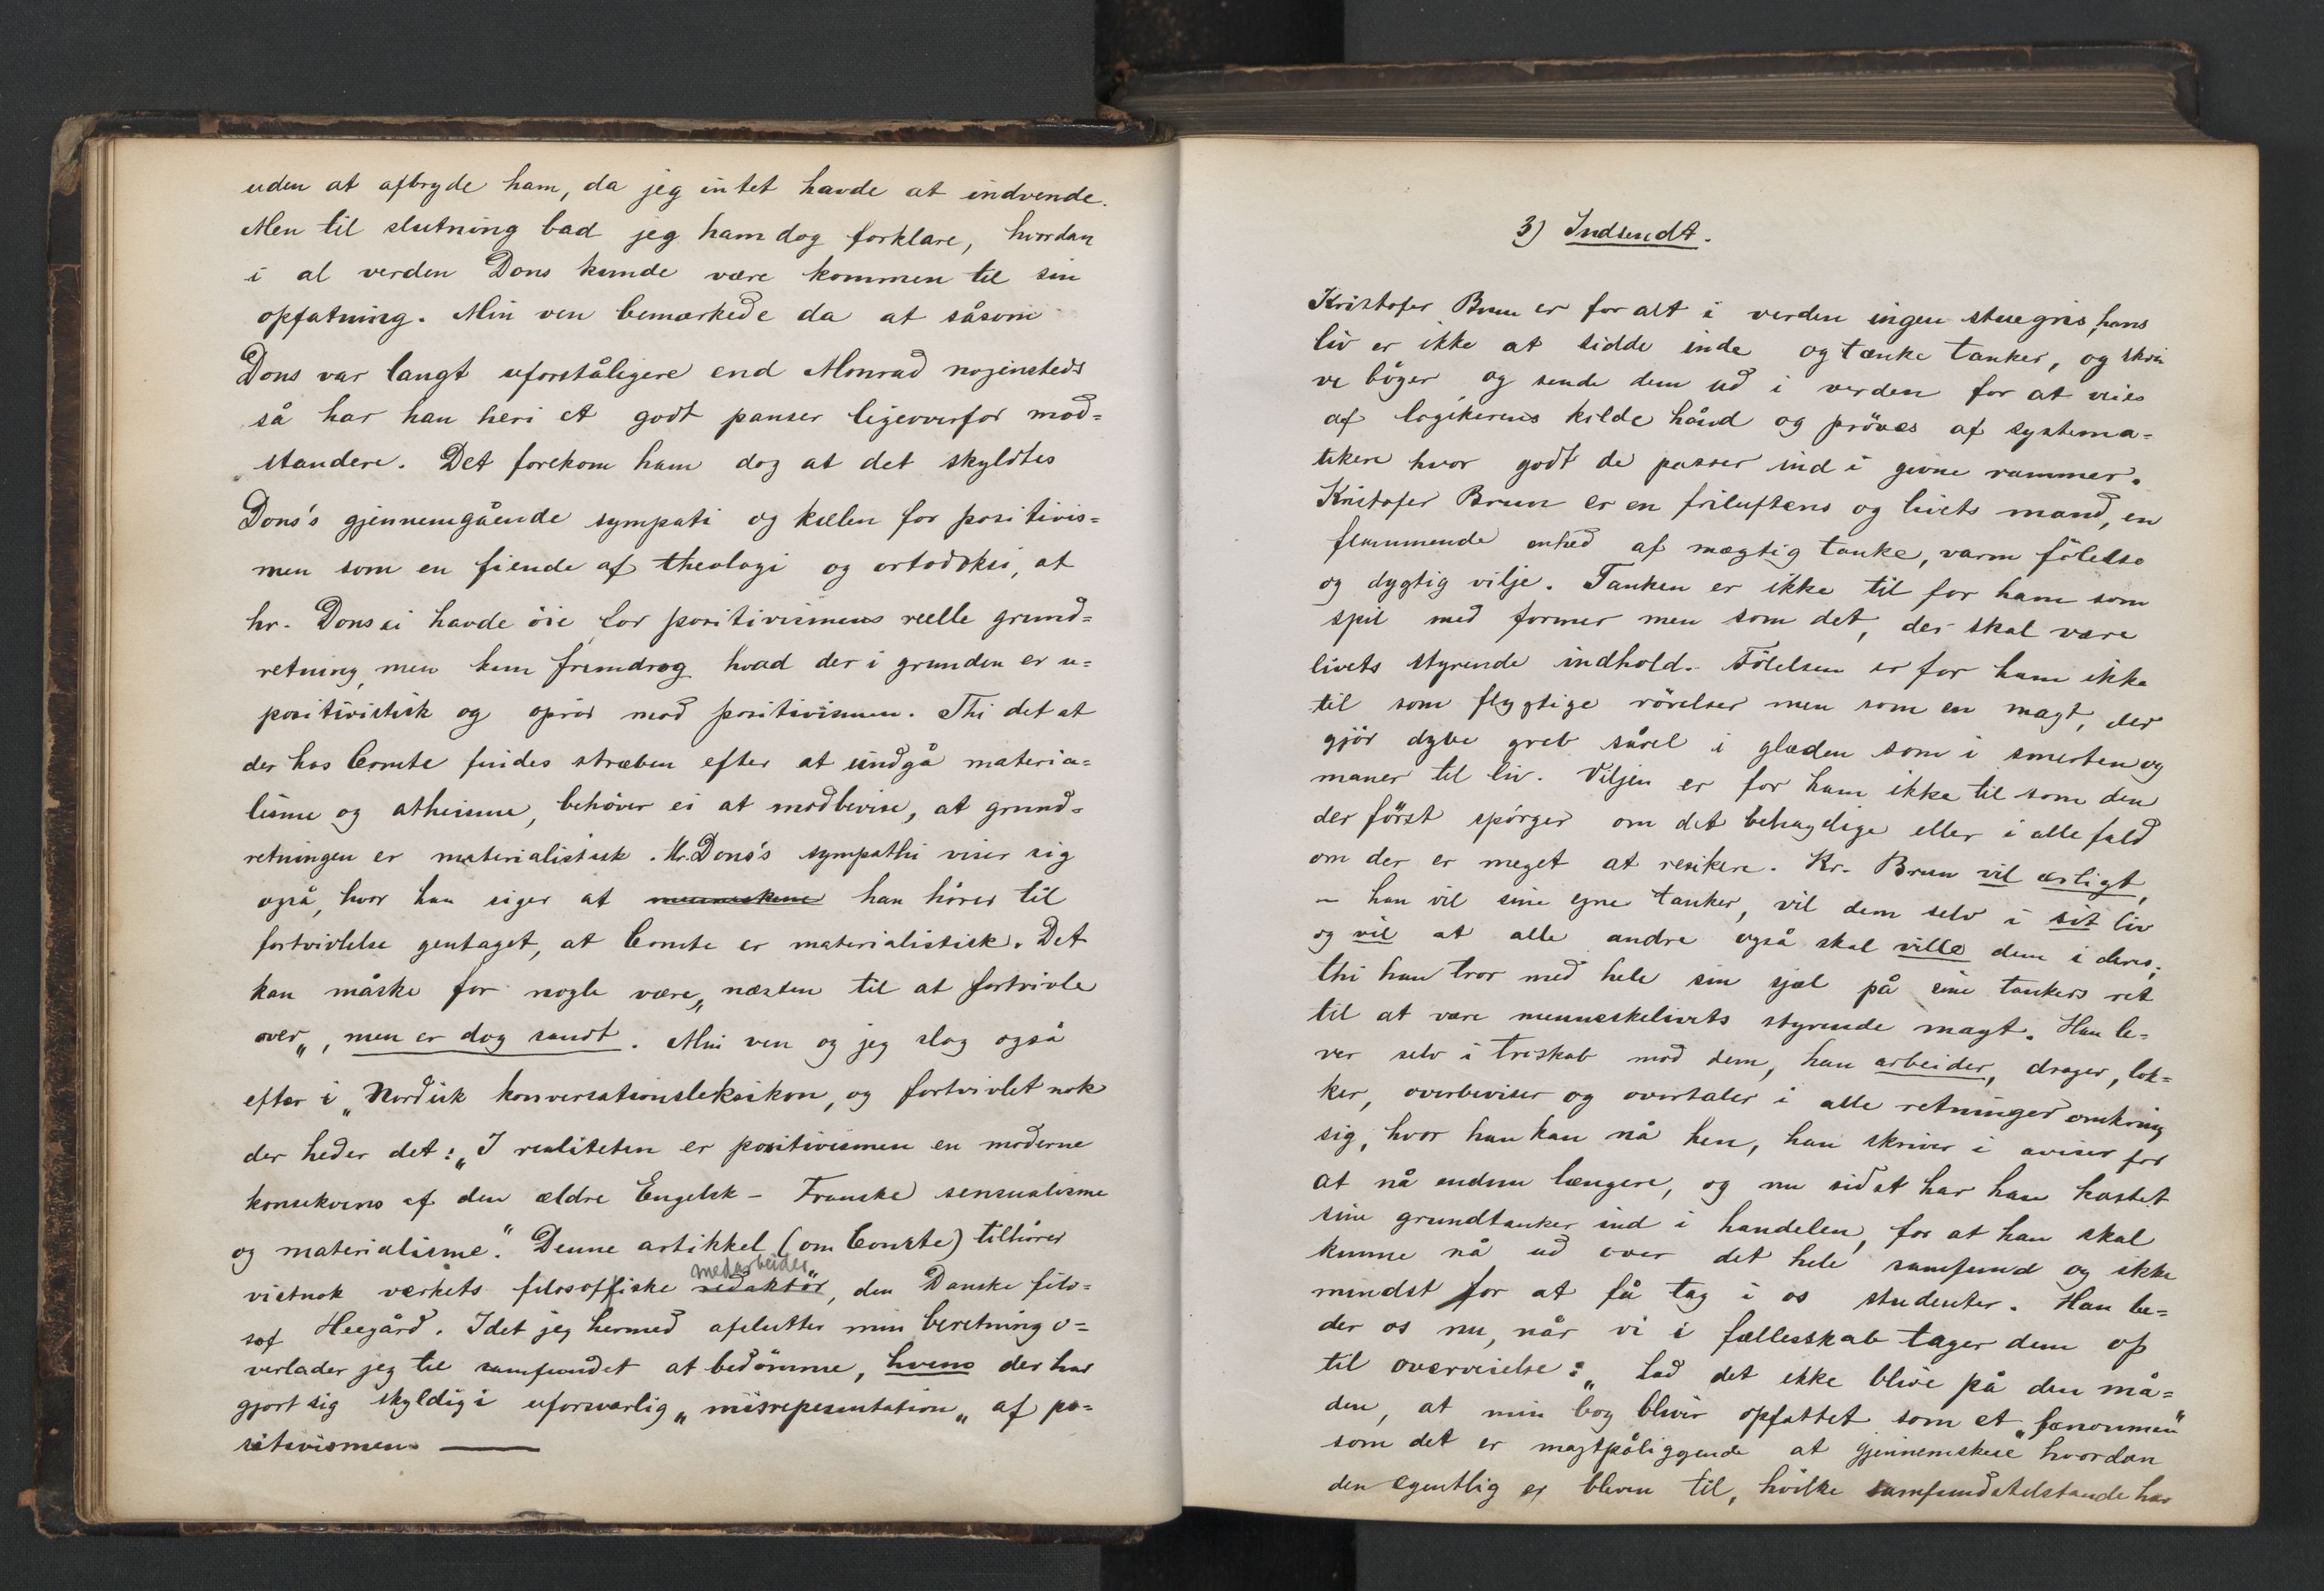 uden at afbryde ham, da jeg intet havde at indvende.
Men til slutning bad jeg ham dog forklare, hvordan
i al verden Dons kunde være kommen til sin
opfatning. Min ven bemærkede da at såsom
Dons var langt uforståligere end Monrad nogensteds
så har han heri et godt panser ligeoverfor mod=
standere. Det forekom ham dog at det skyldtes
Dons's gjennemgående sympati og kælen for positivis=
men som en fiende af theologi og ortodoksi, at
hr. Dons ei havde öie for positivismens reelle grund=
retning, men kun fremdrog hvad der i grunden er u=
positivistisk og oprör mod positivismen. Thi det at
der hos Comte findes stræben efter at undgå materia=
lisme og atheisme, behöver ei at modbevise, at grund=
retningen er materialistisk. Hr. Dons's sympathi viser sig
også, hvor han siger at menneskene han hörer til
fortvivlelse gentaget, at Comte er materialistisk. Det
kan måske for nogle være „næsten til at fortvivle
over„, men er dog sandt. Min ven og jeg slog også
efter i „Nordisk konversationsleksikon, og fortvivlet nok
der heder det: „I realiteten er positivismen en moderne
konsekvens af den ældre Engelsk - Franske sensualisme
og materialisme." Denne artikkel (om Comte) tilhörer
medarbeider
vistnok værkets filosoffiske redaktör, den Danske filo=
sof Heegård. Idet jeg hermed afslutter min beretning o=
verlader jeg til samfundet at bedömme, hvem der har
gjort sig skyldig i uforsvarlig „misrepesentation„ af po=
sitivismen. —
3) Indsendt.
Kristofer Brun er for alt i verden ingen stuegris, hans
liv er ikke at sidde inde og tænke tanker, og skri
ve böger og sende dem ud i verden for at veies
af logikerens kilde hånd og pröves af systema=
tikere hvor godt de passer ind i givne rammer.
Kristofer Brun er en friluftens og livets mand, en
flammende enhed af mægtig tanke, varm fölelse
og dygtig vilje. Tanken er ikke til for ham som
spil med former men som det, der skal være
livets styrende indhold. Fölelsen er for ham ikke
til som flygtige rörelser men som en magt, der
gjör dybe greb såvel i glæden som i smerten og
maner til liv. Viljen er for ham ikke til som den
der först spörger om det behagelige eller i alle fald
om der er meget at resikere. Kr. Brun vil ærligt,
- han vil sine egne tanker, vil dem selv i sit liv
og vil at alle andre også skal ville dem i deres;
thi han tror med hele sin sjæl på sine tankers ret
til at være menneskelivets styrende magt. Han le=
ver selv i troskab mod dem, han arbeider, drager, lok=
ker, overbeviser og overtaler i alle retninger omkring
sig, hvor han kan nå hen, han skriver i aviser for
at nå endnu længere, og nu sidst har han kastet
sine grundtanker ind i handelen, for at han skal
kunne nå ud over det hele samfund og ikke
mindst for at få tag i os studenter. Han be=
der os nu, når vi i fællesskab tager dem op
til overveielse: „Lad det ikke blive på den må=
den, at min bog bliver opfattet som et „fænomen"
som det er magtpåliggende at gjennemskue hvordan
den egentlig er bleven til, hvilke samfundstilstande har